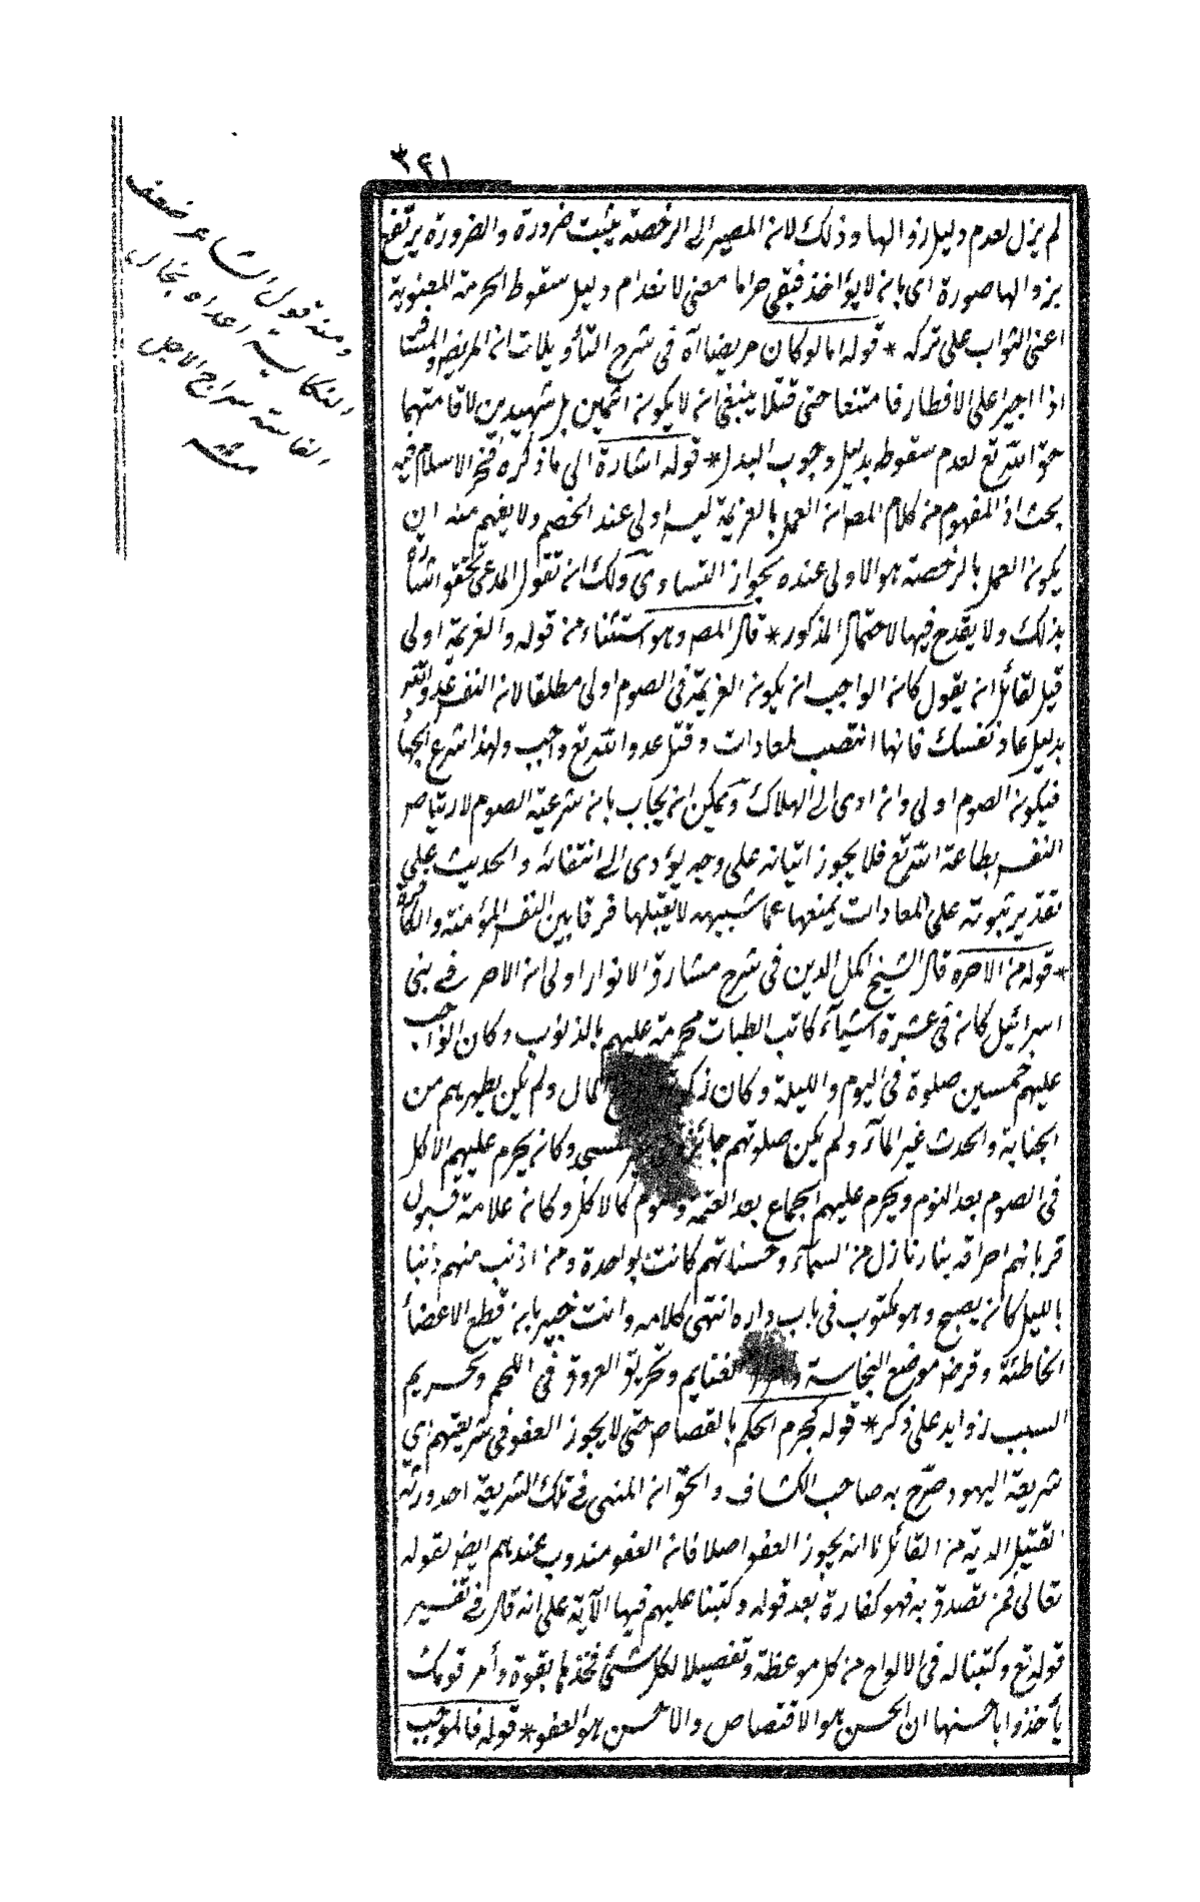 ٣٢١
لم يزل لعدم دليل زوالها وذلك لان المصير الى الرخصة يثبت ضرورة والضرورة يرتفع
بزوالها صورة اى بان لا يؤاخذ فبقى حراما معنى لانعدام دليل سقوط الحرمة المعنوية
اعنى الثواب على تركه * قوله اما لو كان مريضا آه فى شرح التأويلات ان المريض والمسافر
اذا اجبرا على الافطار فامتنعا حتى قتلا ينبغى ان لا يكون اثمين بل شهيدين لاقامتهما
حق الله تع لعدم سقوطه بدليل وجوب البدل * قوله اشارة الى ما ذكره فخر الاسلام فيه
بحث اذ المفهوم من كلام المص ان العمل بالعزيمة ليس اولى عند الخصم ولا يفهم منه ان
يكون العمل بالرخصة هو الاولى عنده لجواز التساوى ولك ان تقول المدعى تحقق اشارة
بذلك ولا يقدح فيها الاحتمال المذكور * قال المص وهو استثناء من قوله والعزيمة اولى
قيل لقائل ان يقول كان الواجب ان يكون العزيمة فى الصوم اولى مطلقا لان النفس عدو الله
بدليل عاد نفسك فانها انتصب لمعادات وقتل عدو الله تع واجب ولهذا شرع الجهاد
فيكون الصوم اولى وان ادى الى الهلاك ويمكن ان يجاب بان شرعية الصوم لارتياض
النفس بطاعة الله تع فلا يجوز اتيانه على وجه يؤدى الى انتفائه والحديث على
تقدير ثبوته على المعادات بمنعها عما تشتهيه لا بقتلها فرقا بين النفس المؤمنة والكافرة
* قوله من الاصر آه قال الشيخ اكمل الدين فى شرح مشارق الانوار اولى ان الاصر فى بنى
اسرائيل كان فى عشرة اشياء كانت الطيبات محرمة عليهم بالذنوب وكان الواجب
عليهم خمسين صلوة فى اليوم والليلة وكان المال ولم يكن يطهرهم من
الجنابة والحدث غير الماء ولم يكن صلوتهم جائزة وكان يحرم عليهم الاكل
فى الصوم بعد النوم ويحرم عليهم الجماع بعد العتمة كالاكل وكان علامة قبول
قربانهم احراقه بنار نازل من السماء وحسناتهم كانت بواحدة ومن اذنب منهم ذنبا
بالليل كان يصبح وهو مكتوب فى باب داره انتهى كلامه وانت خبير بان قطع الاعضاء
الخاطئة وقرض موضع النجاسة الغنايم وتحريق العروق فى اللحم وتحريم
السبت زوايد على ذكر * قوله كجزم الحكم بالقصاص حتى لا يجوز العفو فى شريعتهم اى
شريعة اليهود صرح به صاحب الكشاف والحق ان المنهى فى تلك الشريعة اخذ ورثة
القتيل الدية من القاتل لا انه يجوز العفو اصلا فان العفو مندوب عندهم ايض لقوله
تعالى فمن تصدق به فهو كفارة بعد قوله وكتبنا عليهم فيها الآية على انه قال فى تفسير
قوله تع وكتبنا له فى الالواح من كل موعظة وتفصيلا لكل شئ فخذها بقوة وأمر قومك
يأخذوا باحسنها ان الحسن هو الاقتصاص والاحسن هو العفو * قوله فالموجب
ومنه قول الشاعر ضعيف
النكاية اعداءه يخال
الفرار يراخى الاجل
منه